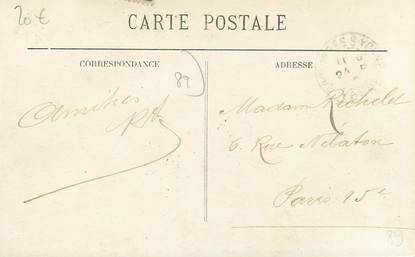 20 €
CARTE POSTALE
CORRESPONDANCE
ADRESSE
89
Amitiés
Madame Richeld
6. Rue Nélaton
Paris 15e
89